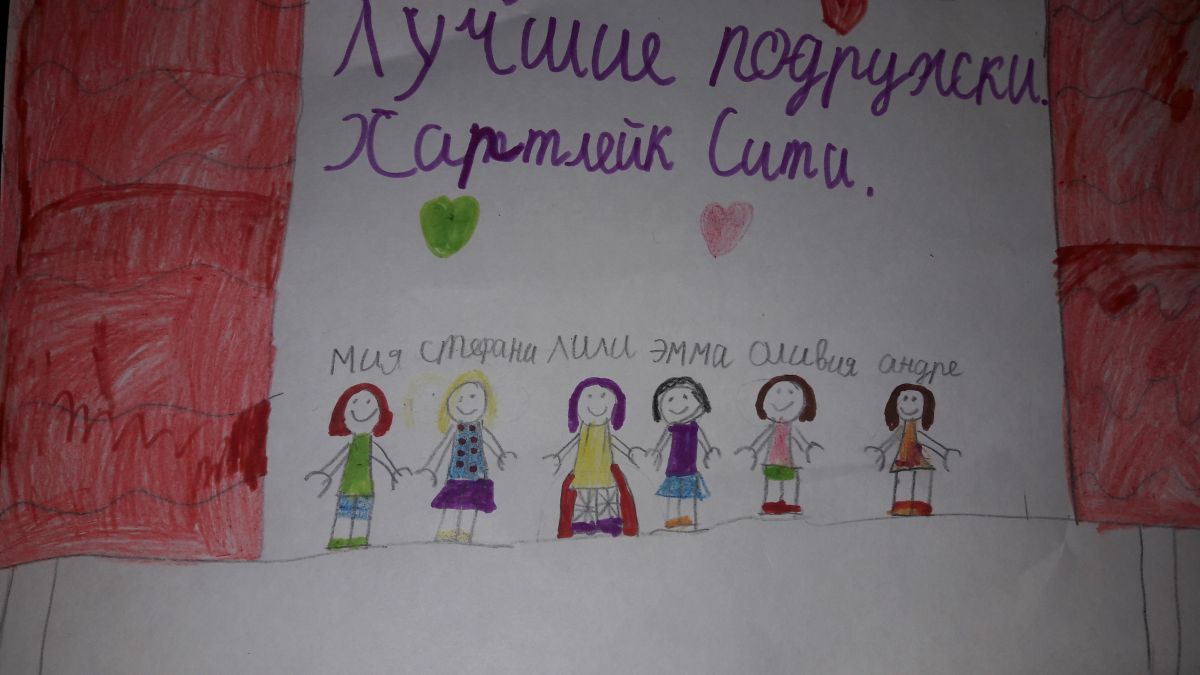 Лучшие подружки.
Хартлейк Сити.
мия стефани лили эмма оливия андре